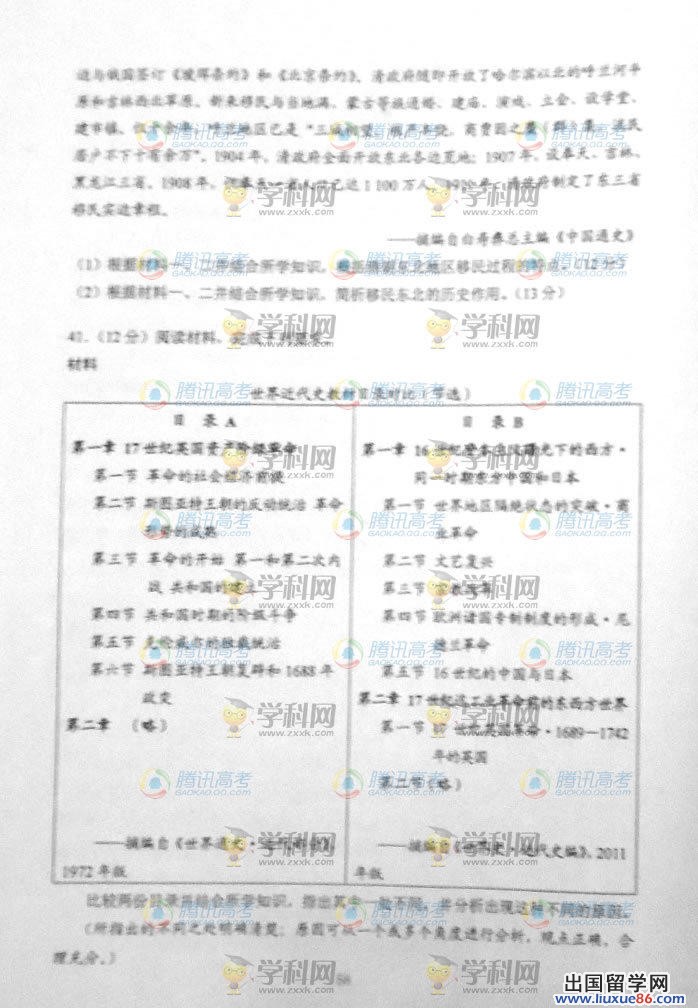 逊与俄国签订《瑷珲条约》和《北京条约》,清政府随即开放了哈尔滨以北的呼兰河平
原和吉林西北草原。新来移民与当地满、蒙古等族通婚、建庙、演戏、立会、设学堂、
建市镇,
居户不下十有余万"。1904年,清政府全面开放东北各边荒地;1907年,设奉天、吉林、
黑龙江三省。1908年, 已达1100万人。 清政府制定了东三省
移民实边章程。
——摘编自白寿彝总主编《中国通史》
(1)根据材料一、二并结合所学知识, 移民过程的特点。(12分)
(2)根据材料一、二并结合所学知识,简析移民东北的历史作用。(13分)
41.(12分)阅读材料,
材料
世界近代史教材目录对比(节选)
目 录 A
第一章 17世纪英国资产阶级革命
第一节 革命的社会经济前提
第二节 斯图亚特王朝的反动统治 革命
形势的成熟
第三节 革命的开始 第一和第二次内
战 共和国的建立
第四节 共和国时期的阶级斗争
第五节 克伦威尔的 统治
第六节 斯图亚特王朝复辟和1688年
政变
第二章 (略)
——摘编自《世界通史·近代部分》,
1972年版
目 录 B
第一章 16世纪 曙光下的西方·
同一时期的 中国和日本
第一节 世界地区隔绝状态的突破·商
业革命
第二节 文艺复兴
第三节 宗教改革
第四节 欧洲诸国专制制度的形成·尼
德兰革命
第五节 16世纪的中国与日本
第二章 17世纪迄工业革命前的东西方世界
第一节 革命·1689—1742
年的英国
第二节(略)
——摘编自《世界史·近代史编》,2011
年版
比较两份目录并结合所学知识,指出其中一处不同,并分析出现这种不同的原因。
(所指出的不同之处明确清楚;原因可以从一个或多个角度进行分析,观点正确、合
理充分。)
腾讯高考
GAOKAO.QQ.COM
学科网
www.zxxk.com
出国留学网
www.liuxue86.com